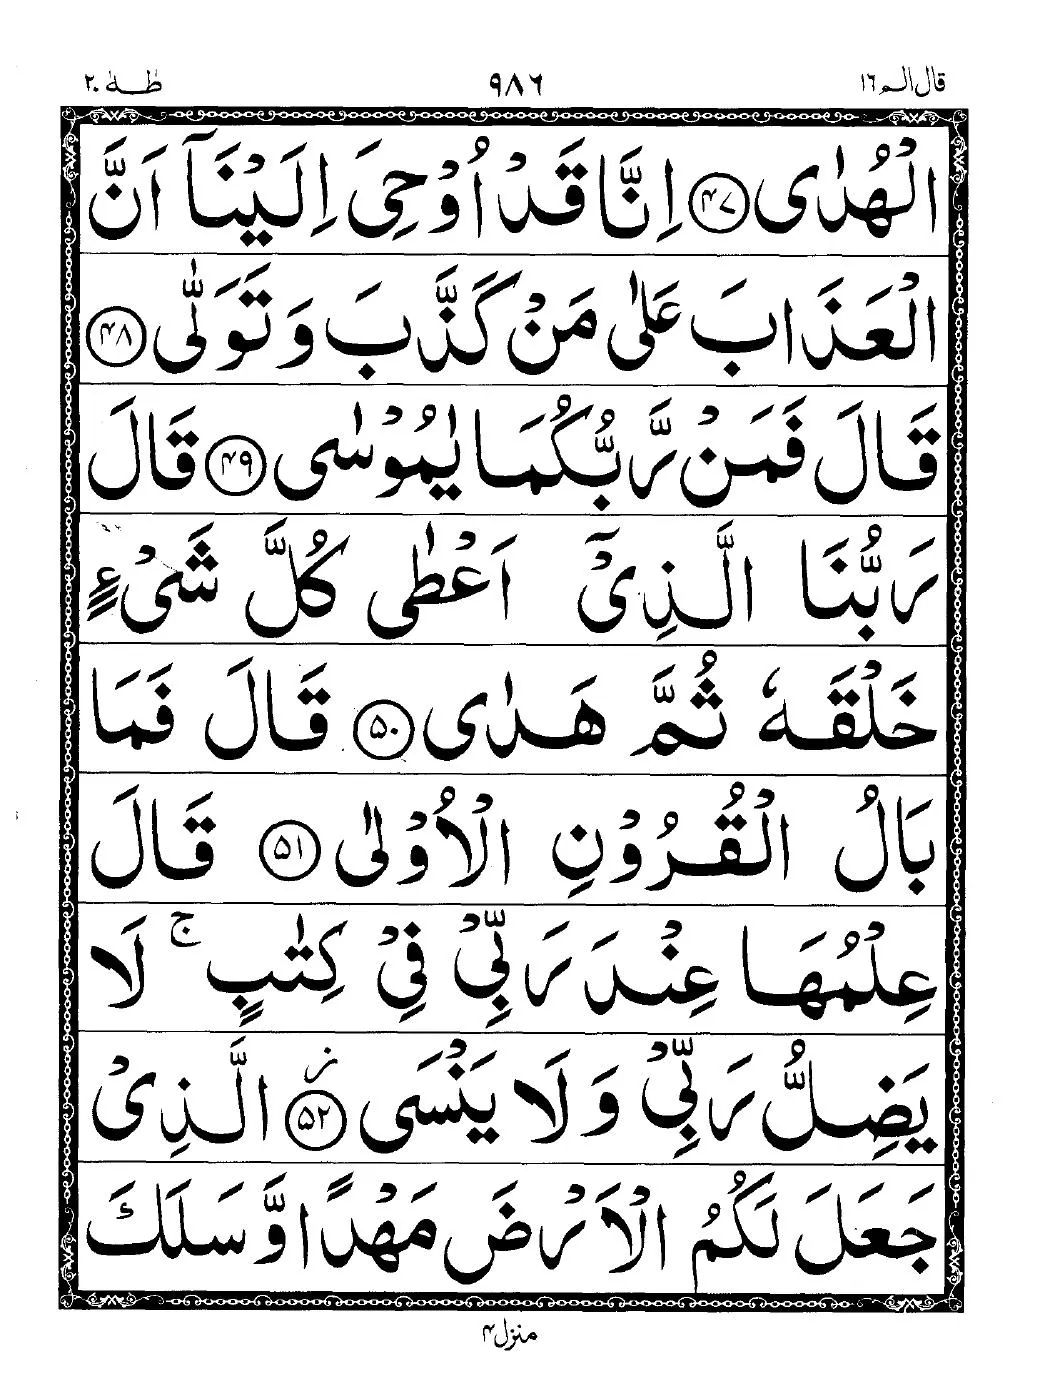 قال الم ١٦ ۹۸۶ طٰهٰ ٢٠
الْهُدٰى ﴿۴۷﴾ اِنَّا قَدْ اُوْحِیَ اِلَیْنَاۤ اَنَّ
الْعَذَابَ عَلٰی مَنْ كَذَّبَ وَ تَوَلّٰی ﴿۴۸﴾
قَالَ فَمَنْ رَّبُّكُمَا یٰمُوْسٰی ﴿۴۹﴾ قَالَ
رَبُّنَا الَّذِیْۤ اَعْطٰی كُلَّ شَیْءٍ
خَلْقَهٗ ثُمَّ هَدٰی ﴿۵۰﴾ قَالَ فَمَا
بَالُ الْقُرُوْنِ الْاُوْلٰی ﴿۵۱﴾ قَالَ
عِلْمُهَا عِنْدَ رَبِّیْ فِیْ كِتٰبٍ ۚ لَا
یَضِلُّ رَبِّیْ وَ لَا یَنْسَی ﴿۵۲﴾ ز الَّذِیْ
جَعَلَ لَكُمُ الْاَرْضَ مَهْدًا وَّ سَلَكَ
منزل ۴